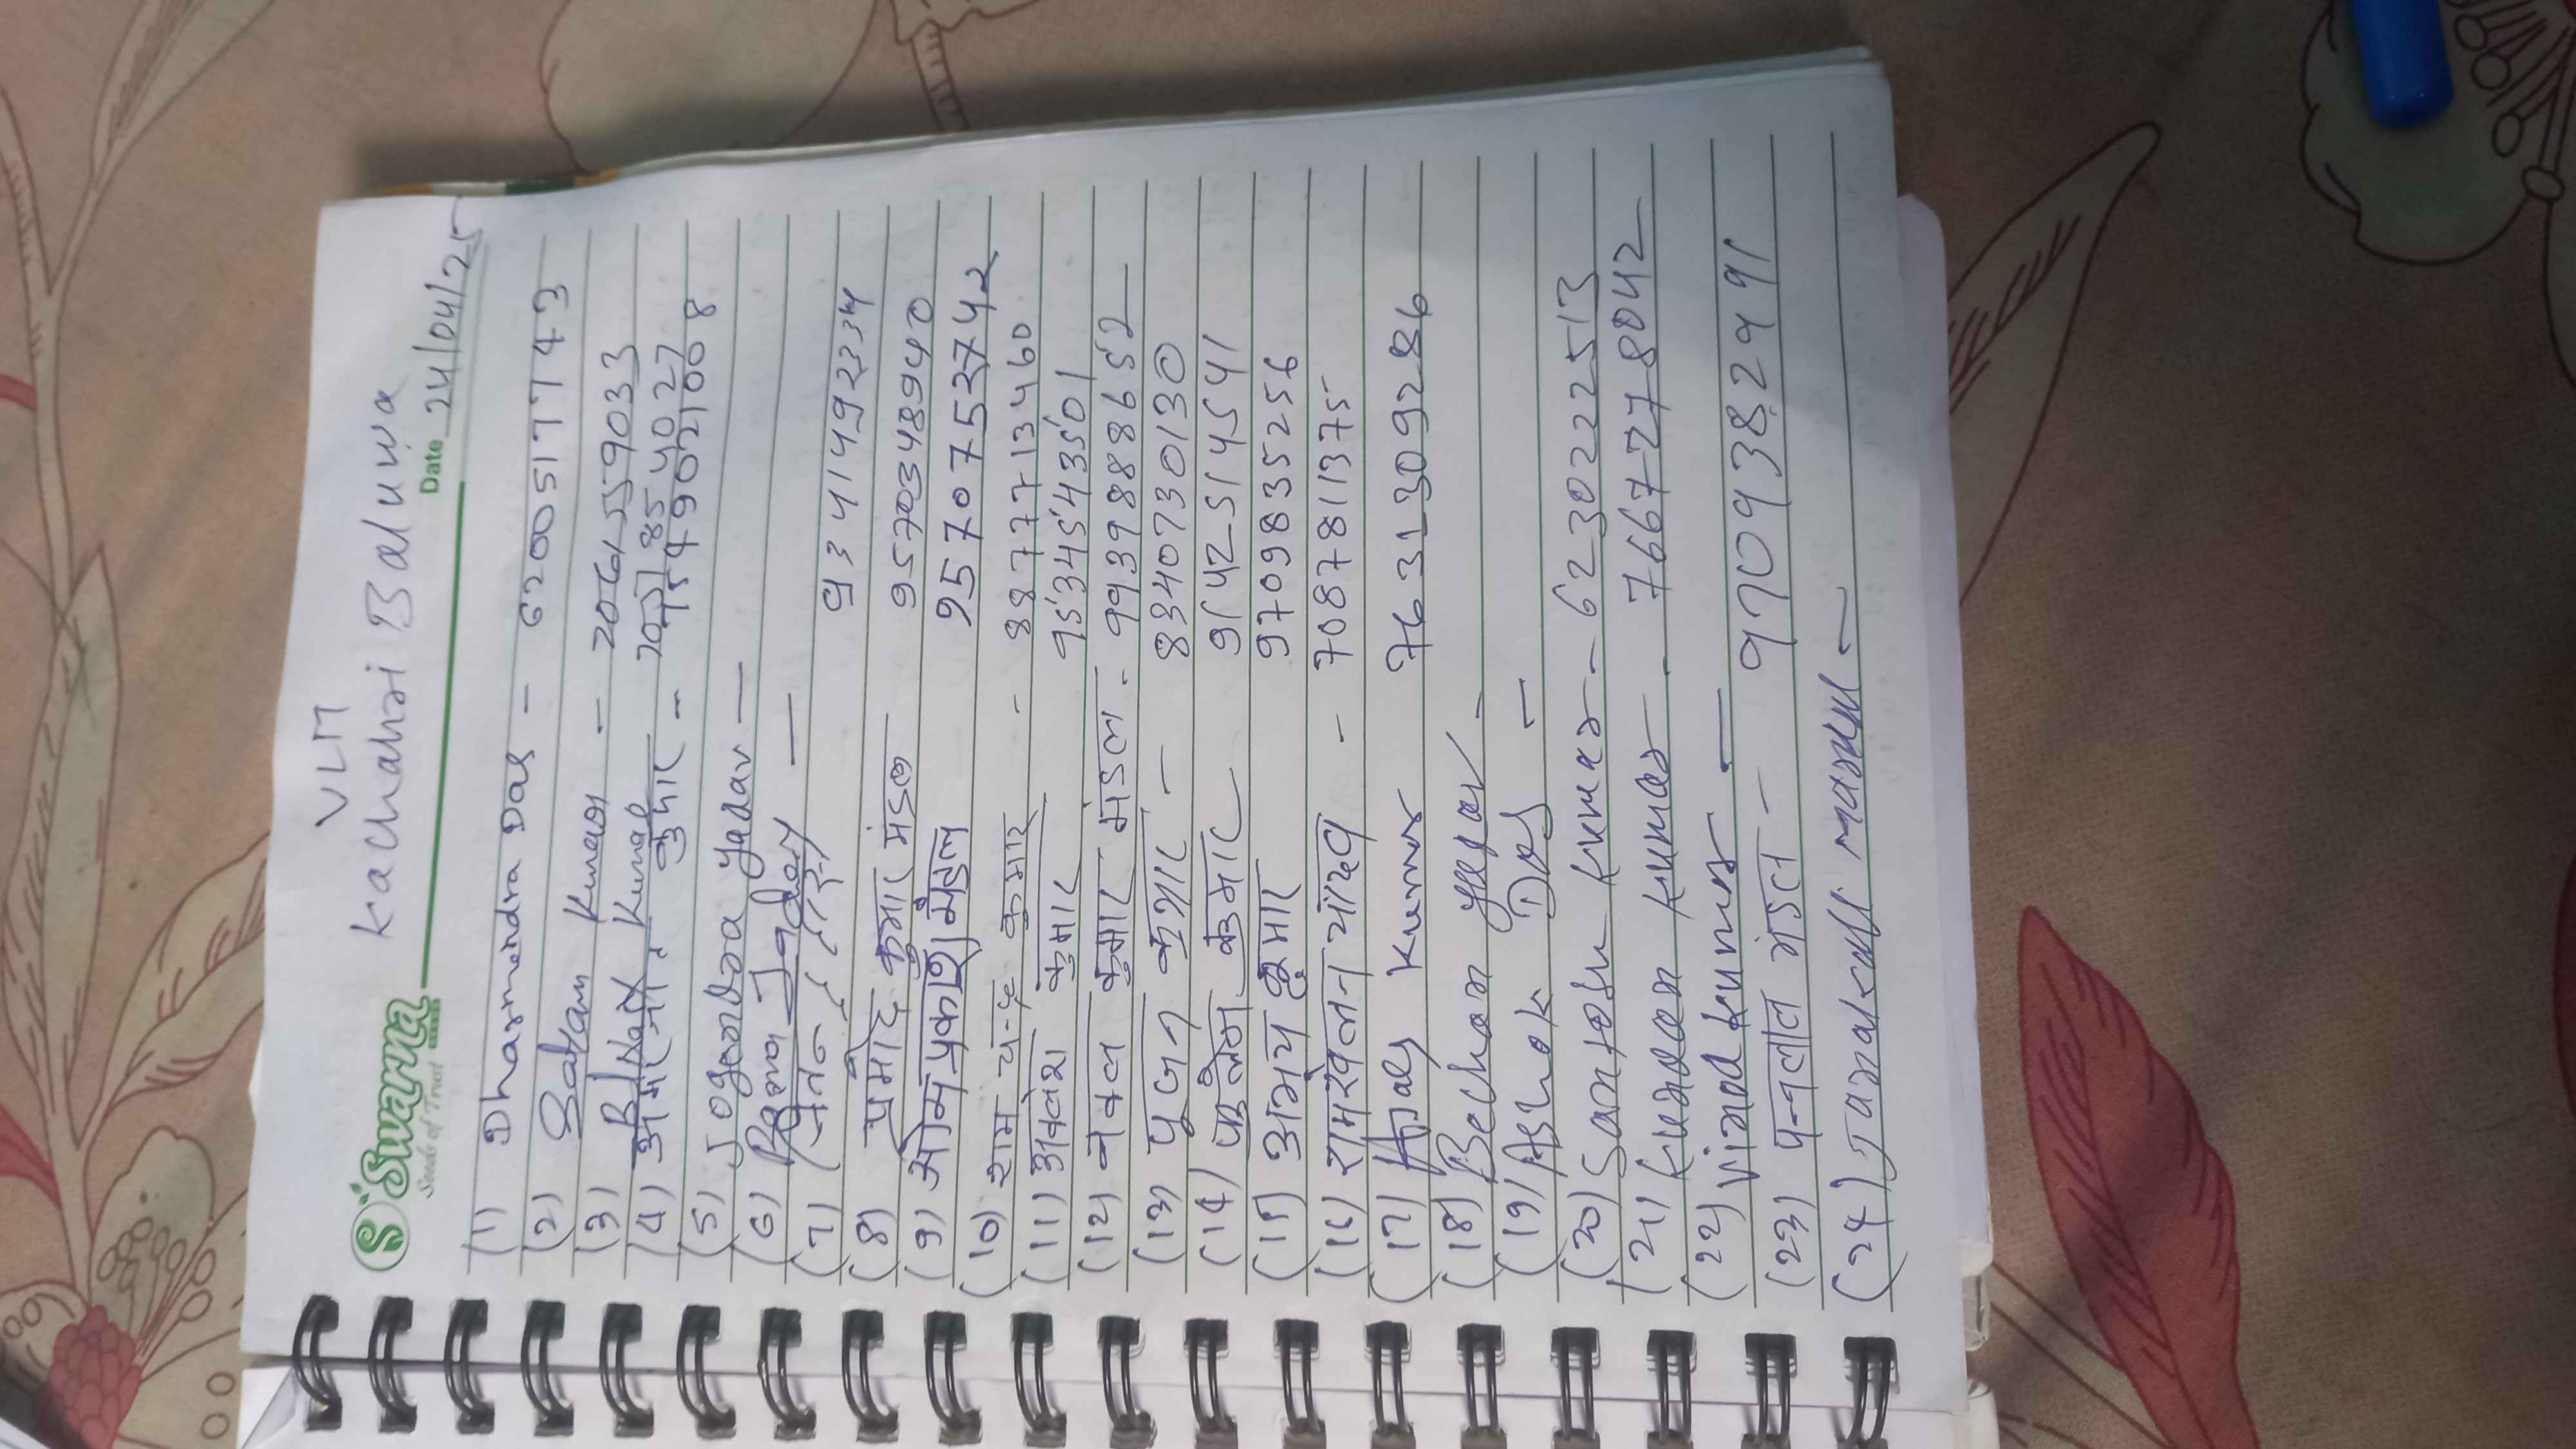 VLM
Kachahri Baluwa
Swarna
Seeds of Trust
Date 24/04/25
(1) Dharmendra Das - 6200517743
(2) Satyam Kumar - 2061559033
(3) Kumar 85 4027
(4) कुमार - 7549021008
(5) Jogendra Yadav -
(6)
(7) 9341492334
(8) प्रमोद कुमार मंडल 9570348940
(9) ओमप्रकाश मंडल 9570753742
(10) राम चन्द्र कुमार - 8877713460
(11) अवधेश कुमार 9534543501
(12) नवल कुमार मंडल - 9939888652
(13) पूजन कुमार - 8340730130
(14) कुमार 9142514541
(15) अजय कुमार 9709835256
(16) रामखेलन यादव - 7087811375
(17) Ajay Kumar 7631309286
(18) Bechan Yadav -
(19) Ashok Das -
(20) Santosh Kumar - 6230222513
(21) Kundan Kumar - 7667778042
(22) Vinod Kumar -
(23) पन्नालाल मंडल - 9709382991
(24) Janakall mandal -